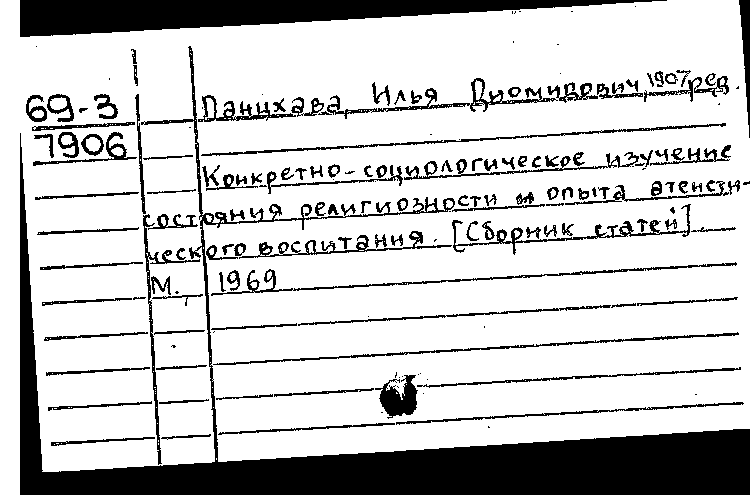 69-3 Панцхава, Илья Диомидович, 1907 ред.
7906
Конкретно-социологическое изучение
состояния религиозности и опыта атеисти-
ческого воспитания. [Сборник статей].
М., 1969